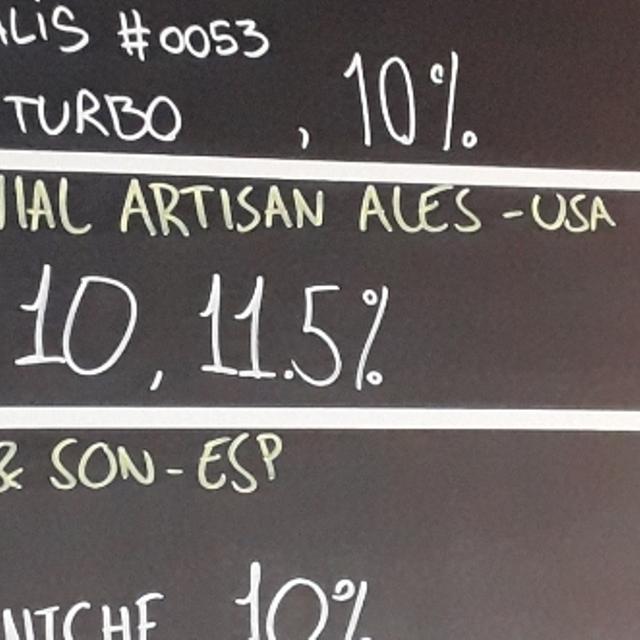 ALIS #0053
TURBO , 10%
IAL ARTISAN ALES - USA
10, 11.5%
& SON - ESP
NTCHE 10%